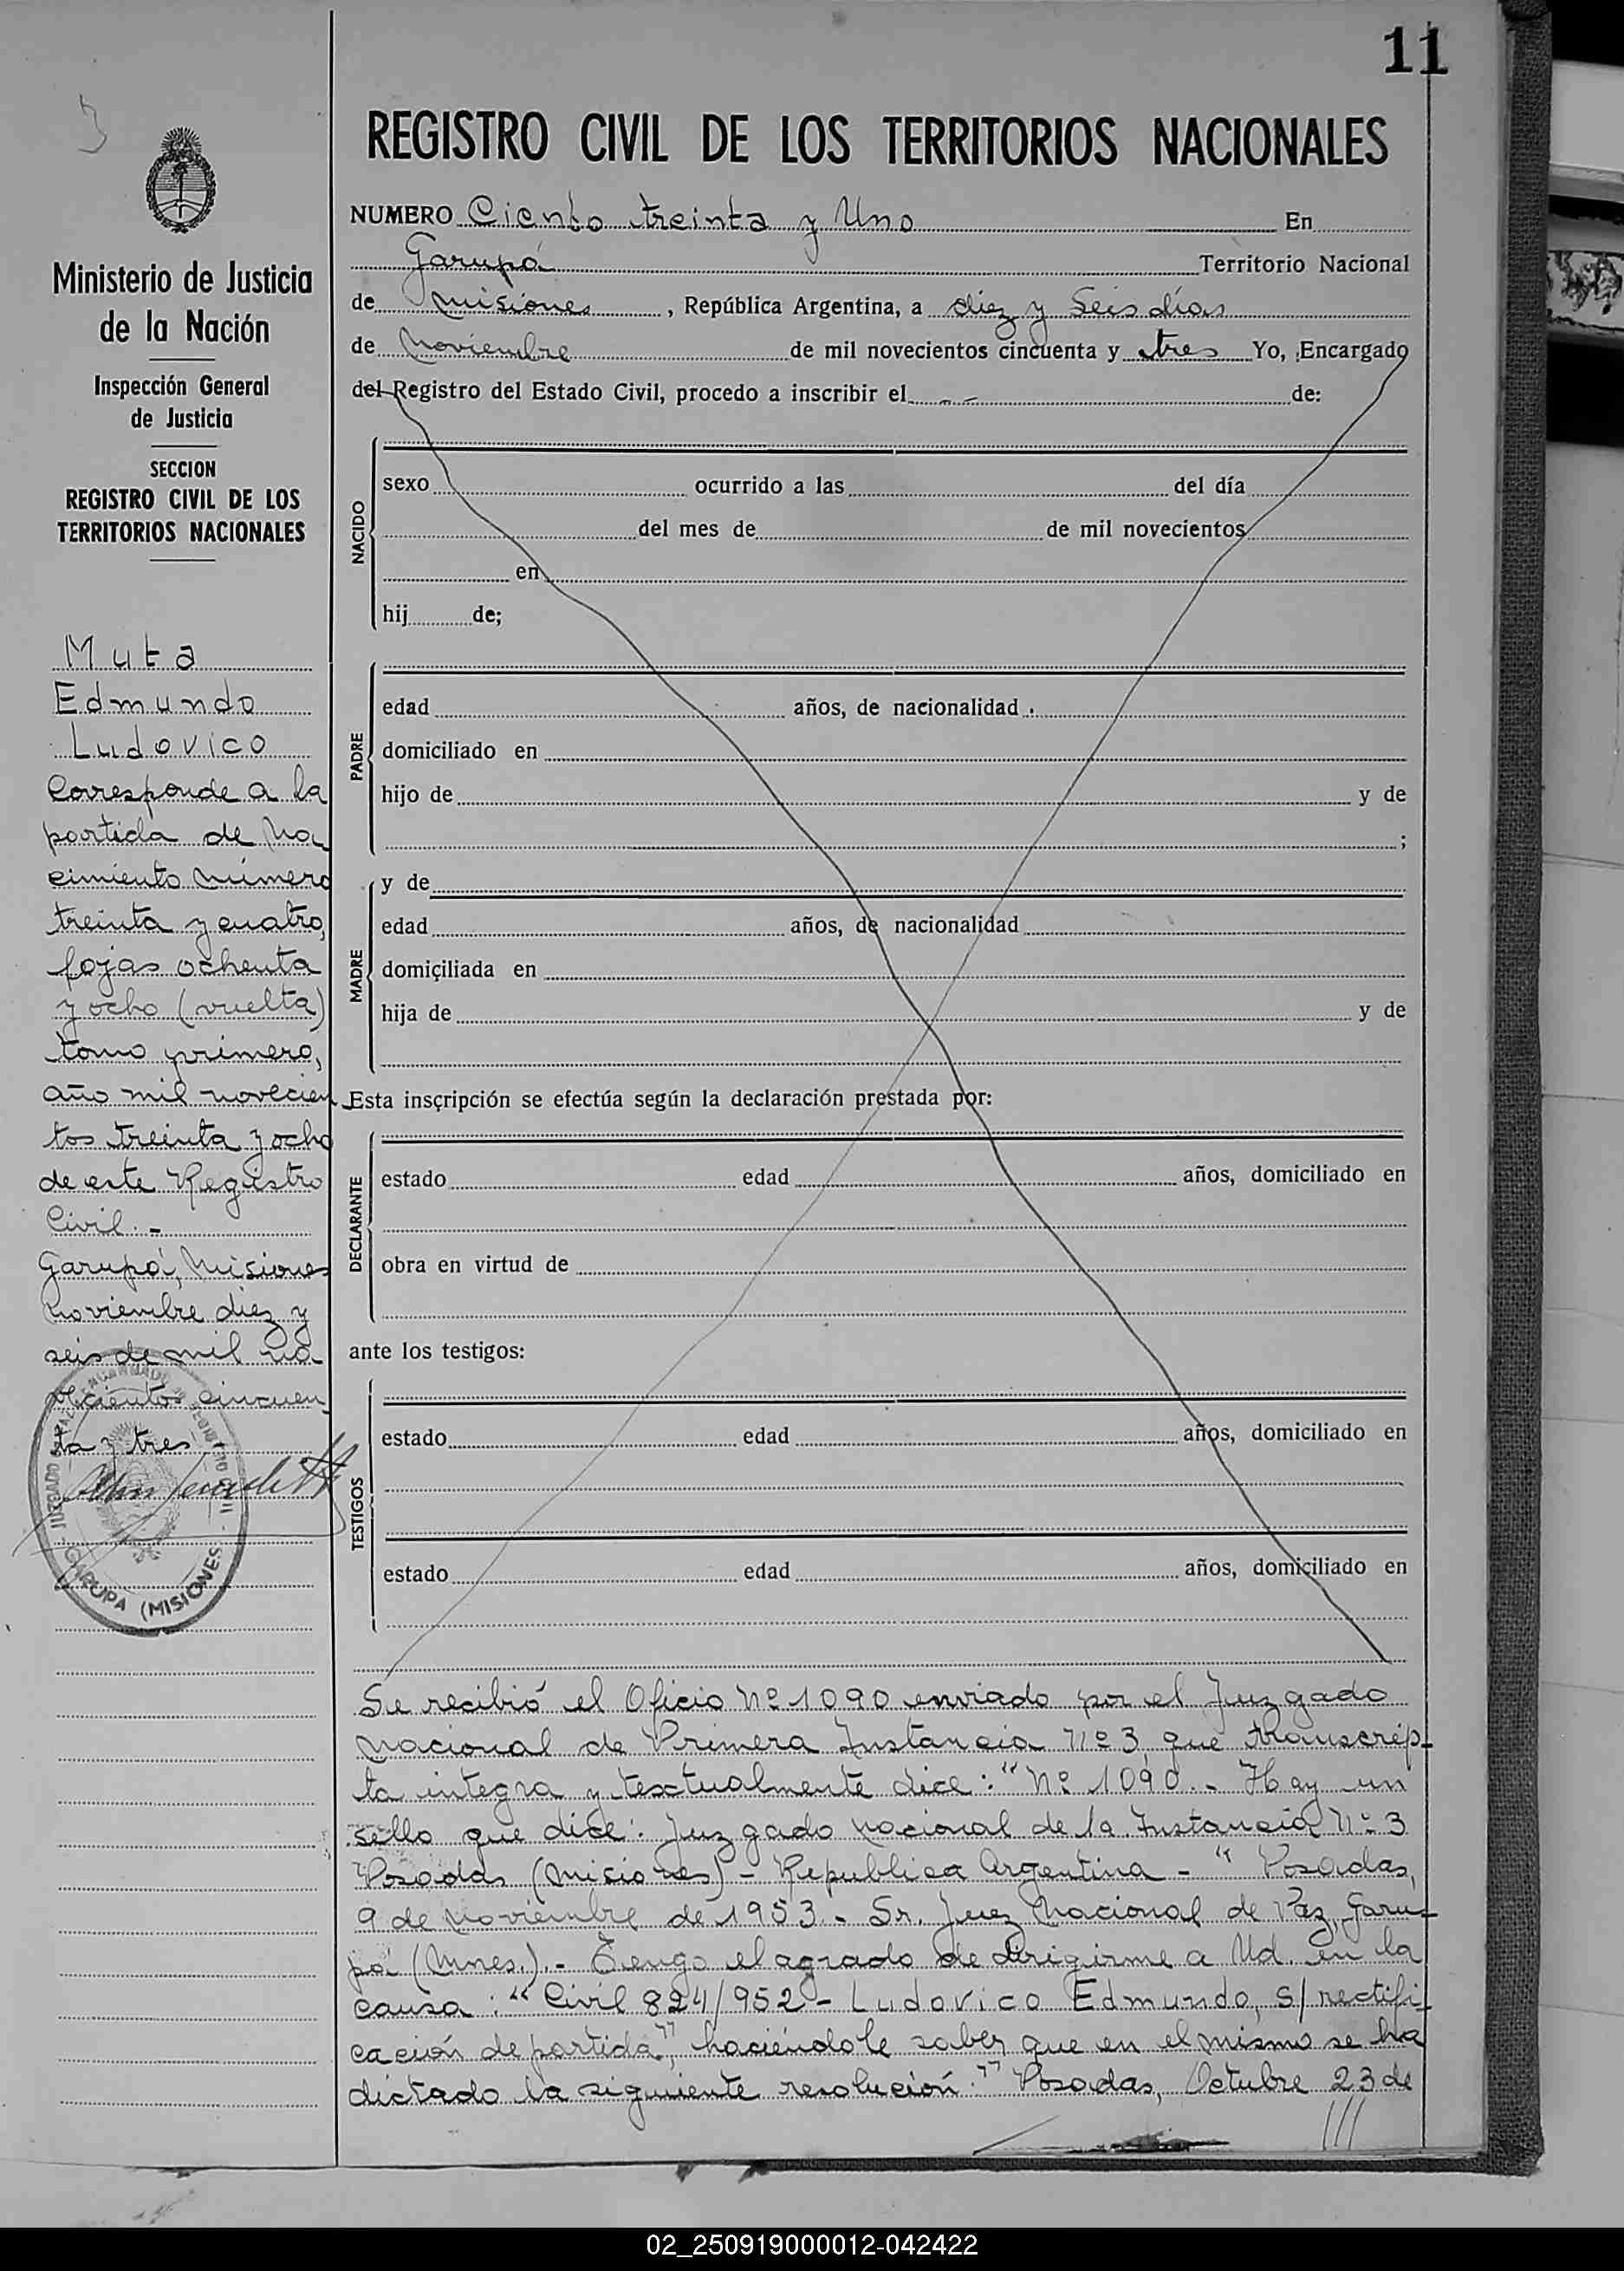 11
3
REGISTRO CIVIL DE LOS TERRITORIOS NACIONALES
NUMERO Ciento treinta y Uno En
Garupá Territorio Nacional
de misiones, República Argentina, a diez y Seis días
de Noviembre de mil novecientos cincuenta y tres Yo, Encargado
del Registro del Estado Civil, procedo a inscribir el - - de:
NACIDO
sexo ocurrido a las del día
del mes de de mil novecientos
en
hij de;
PADRE
edad años, de nacionalidad
domiciliado en
hijo de y de
;
MADRE
y de
edad años, de nacionalidad
domiciliada en
hija de y de
Esta inscripción se efectúa según la declaración prestada por:
DECLARANTE
estado edad años, domiciliado en
obra en virtud de
ante los testigos:
TESTIGOS
estado edad años, domiciliado en
estado edad años, domiciliado en
Se recibió el Oficio Nº 1090 enviado por el Juzgado
Nacional de Primera Instancia Nº 3, que transcrip-
ta integra y textualmente dice: "Nº 1090.- Hay un
sello que dice: Juzgado Nacional de 1a. Instancia Nº 3
Posadas (Misiones) - Republica Argentina - " Posadas,
9 de Noviembre de 1953.- Sr. Juez Nacional de Paz, Garu-
pá (Mnes.).- Tengo el agrado de dirigirme a Ud. en la
causa: "Civil 824/952 - Ludovico Edmundo, s/ rectifi-
cación de partida", haciéndole saber que en el mismo se ha
dictado la siguiente resolución: " Posadas, Octubre 23 de
///
Ministerio de Justicia
de la Nación
Inspección General
de Justicia
SECCION
REGISTRO CIVIL DE LOS
TERRITORIOS NACIONALES
Muta
Edmundo
Ludovico
Corresponde a la
partida de Na-
cimiento número
treinta y cuatro,
fojas ochenta
y ocho (vuelta)
tomo primero,
año mil novecien-
tos treinta y ocho
de este Registro
Civil.-
Garupá, Misiones
noviembre diez y
seis de mil no-
vecientos cincuen-
ta y tres.-
GARUPA (MISIONES)
02_250919000012-042422